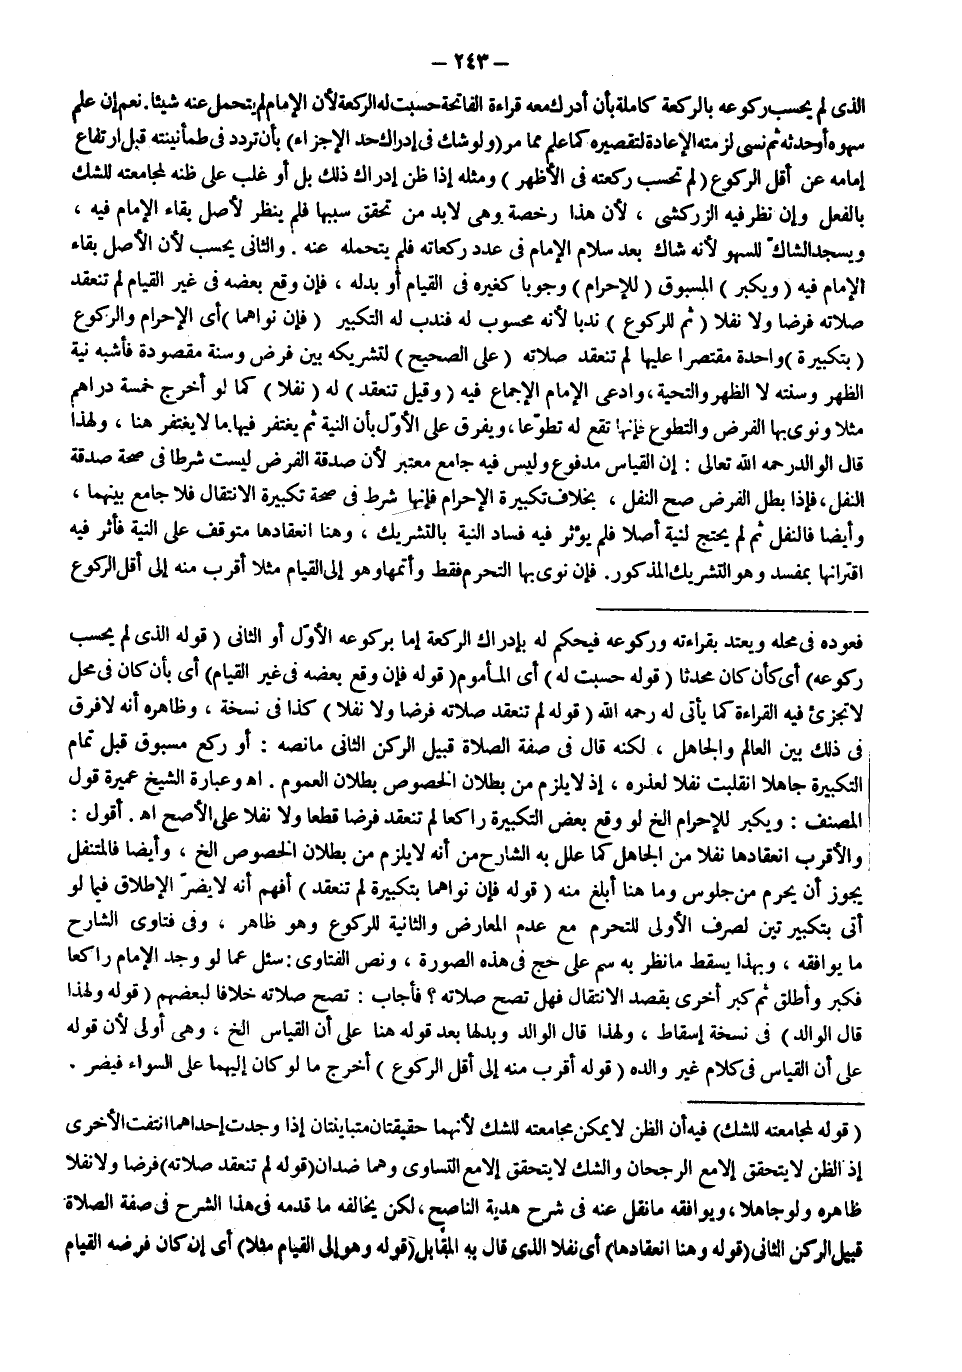 – ٢٤٣ –
الذى لم يحسب ركوعه بالركعة كاملة بأن أدرك معه قراءة الفاتحة حسبت له الركعة لأن الإمام لم يتحمل عنه شيئا. نعم إن علم
سهوه أوحدثه ثم نسى لزمته الإعادة لتقصيره كما علم مما مر (ولو شك فى إدراك حد الإجزاء) بأن تردد فى طمأنينته قبل ارتفاع
إمامه عن أقل الركوع ( لم تحسب ركعته فى الأظهر ) ومثله إذا ظن إدراك ذلك بل أو غلب على ظنه لمجامعته للشك
بالفعل وإن نظر فيه الزركشى ، لأن هذا رخصة وهى لابد من تحقق سببها فلم ينظر لأصل بقاء الإمام فيه ،
ويسجد الشاكّ للسهو لأنه شاك بعد سلام الإمام فى عدد ركعاته فلم يتحمله عنه . والثانى يحسب لأن الأصل بقاء
الإمام فيه ( ويكبر ) المسبوق ( للإحرام ) وجوبا كغيره فى القيام أو بدله ، فإن وقع بعضه فى غير القيام لم تنعقد
صلاته فرضا ولا نفلا ( ثم للركوع ) ندبا لأنه محسوب له فندب له التكبير ( فإن نواهما ) أى الإحرام والركوع
( بتكبيرة ) واحدة مقتصرا عليها لم تنعقد صلاته ( على الصحيح ) لتشريكه بين فرض وسنة مقصودة فأشبه نية
الظهر وسنته لا الظهر والتحية ، وادعى الإمام الإجماع فيه ( وقيل تنعقد ) له ( نفلا ) كما لو أخرج خمسة دراهم
مثلا ونوى بها الفرض والتطوع فإنها تقع له تطوّعا ، ويفرق على الأوّل بأن النية ثم يغتفر فيها ما لا يغتفر هنا ، ولهذا
قال الوالد رحمه الله تعالى : إن القياس مدفوع وليس فيه جامع معتبر لأن صدقة الفرض ليست شرطا فى صحة صدقة
النفل ، فإذا بطل الفرض صح النفل ، بخلاف تكبيرة الإحرام فإنها شرط فى صحة تكبيرة الانتقال فلا جامع بينهما ،
وأيضا فالنفل ثم لم يحتج لنية أصلا فلم يؤثر فيه فساد النية بالتشريك ، وهنا انعقادها متوقف على النية فأثر فيه
اقترانها بمفسد وهو التشريك المذكور. فإن نوى بها التحرم فقط وأتمها وهو إلى القيام مثلا أقرب منه إلى أقل الركوع
فعوده فى محله ويعتد بقراءته وركوعه فيحكم له بإدراك الركعة إما بركوعه الأوّل أو الثانى ( قوله الذى لم يحسب
ركوعه) أى كأن كان محدثا ( قوله حسبت له ) أى المأموم( قوله فإن وقع بعضه فى غير القيام) أى بأن كان فى محل
لا تجزئ فيه القراءة كما يأتى له رحمه الله ( قوله لم تنعقد صلاته فرضا ولا نفلا ) كذا فى نسخة ، وظاهره أنه لا فرق
فى ذلك بين العالم والجاهل ، لكنه قال فى صفة الصلاة قبيل الركن الثانى مانصه : أو ركع مسبوق قبل تمام
التكبيرة جاهلا انقلبت نفلا لعذره ، إذ لا يلزم من بطلان الخصوص بطلان العموم . اه وعبارة الشيخ عميرة قول
المصنف : ويكبر للإحرام الخ لو وقع بعض التكبيرة راكعا لم تنعقد فرضا قطعا ولا نفلا على الأصح اه . أقول :
والأقرب انعقادها نفلا من الجاهل كما علل به الشارح من أنه لا يلزم من بطلان الخصوص الخ ، وأيضا فالمتنفل
يجوز أن يحرم من جلوس وما هنا أبلغ منه ( قوله فإن نواهما بتكبيرة لم تنعقد ) أفهم أنه لا يضرّ الإطلاق فيما لو
أتى بتكبير تين لصرف الأولى للتحرم مع عدم المعارض والثانية للركوع وهو ظاهر ، وفى فتاوى الشارح
ما يوافقه ، وبهذا يسقط مانظر به سم على حج فى هذه الصورة ، ونص الفتاوى : سئل عما لو وجد الإمام راكعا
فكبر وأطلق ثم كبر أخرى بقصد الانتقال فهل تصح صلاته ؟ فأجاب : تصح صلاته خلافا لبعضهم ( قوله ولهذا
قال الوالد ) فى نسخة إسقاط ، ولهذا قال الوالد وبدلها بعد قوله هنا على أن القياس الخ ، وهى أولى لأن قوله
على أن القياس فى كلام غير والده ( قوله أقرب منه إلى أقل الركوع ) أخرج ما لو كان إليهما على السواء فيضر .
( قوله لمجامعته للشك) فيه أن الظن لا يمكن مجامعته للشك لأنهما حقيقتان متباينتان إذا وجدت إحداهما انتفت الأخرى
إذ الظن لا يتحقق إلا مع الرجحان والشك لا يتحقق إلا مع التساوى وهما ضدان (قوله لم تنعقد صلاته) فرضا ولا نفلا
ظاهره ولو جاهلا ، ويوافقه مانقل عنه فى شرح هدية الناصح ، لكن يخالفه ما قدمه فى هذا الشرح فى صفة الصلاة
قبيل الركن الثانى (قوله وهنا انعقادها) أى نفلا الذى قال به المقابل (قوله وهو إلى القيام مثلا) أى إن كان فرضه القيام